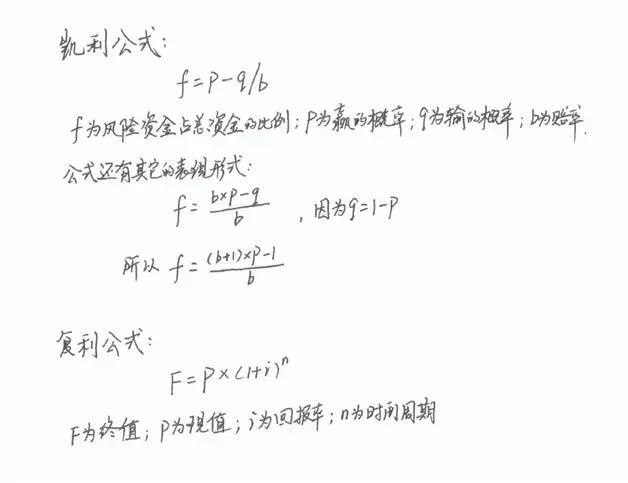 凯利公式:
f=P-q/b
f为风险资金占总资金的比例;P为赢的概率;q为输的概率;b为赔率.
公式还有其它的表现形式:
f=\frac{b×P-q}{b} ,因为q=1-P
所以 f=\frac{(b+1)×P-1}{b}
复利公式:
F=P×(1+i)^n
F为终值;P为现值;i为回报率;n为时间周期